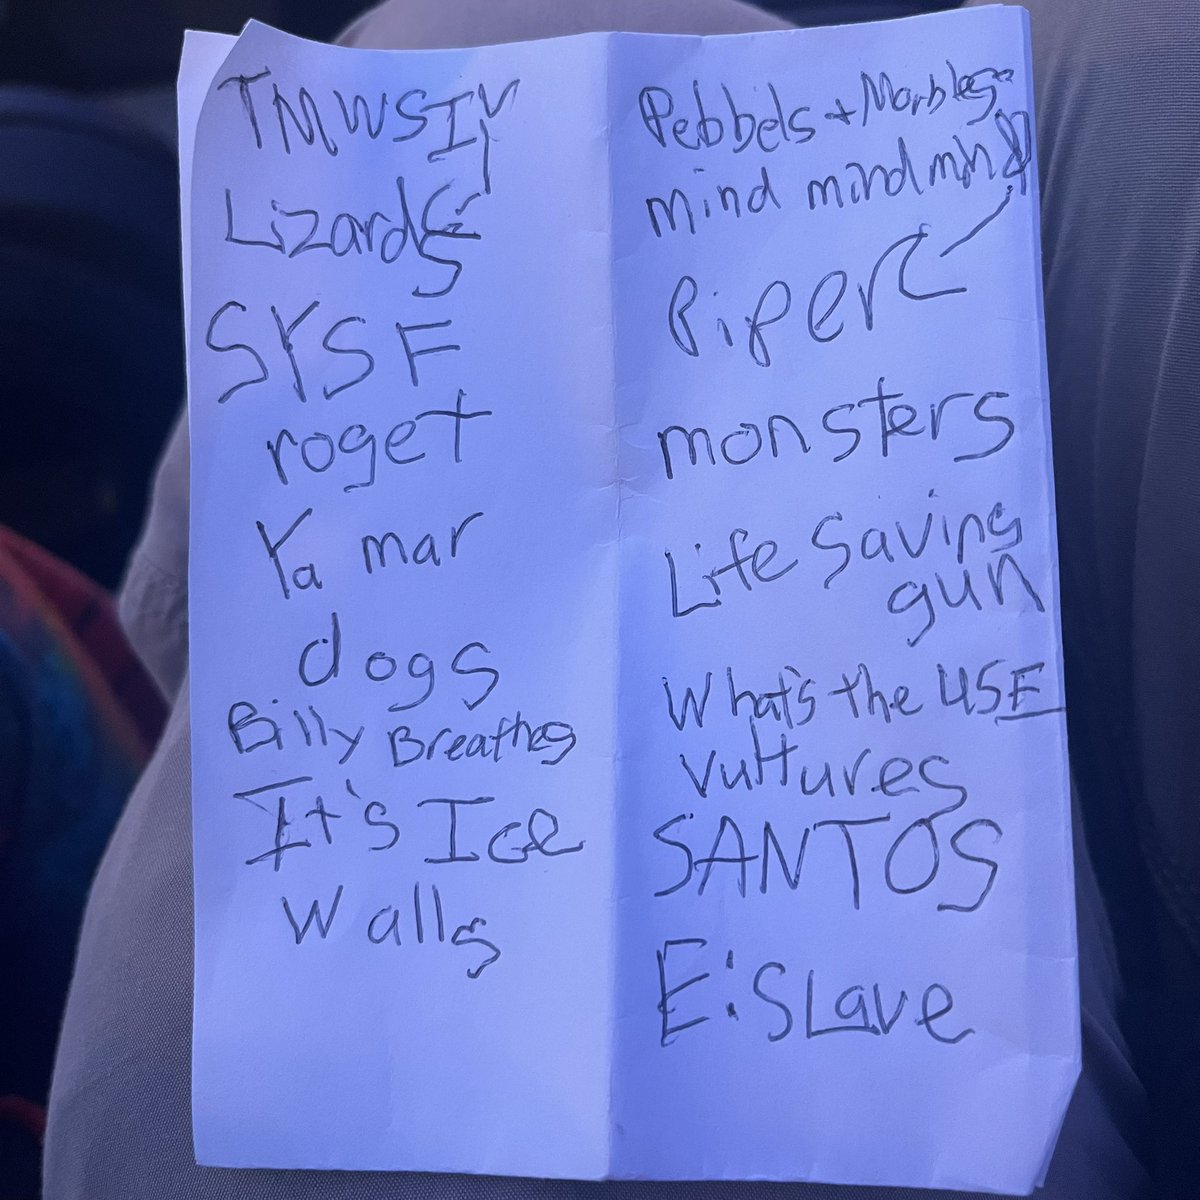 TMWSIY
Lizards
SYSF
roget
Ya mar
dogs
Billy Breathes
It's Ice
Walls
Pebbels + Marbles
mind mind mind
Piper
monsters
Life saving
gun
What's the USE
Vultures
SANTOS
E: Slave